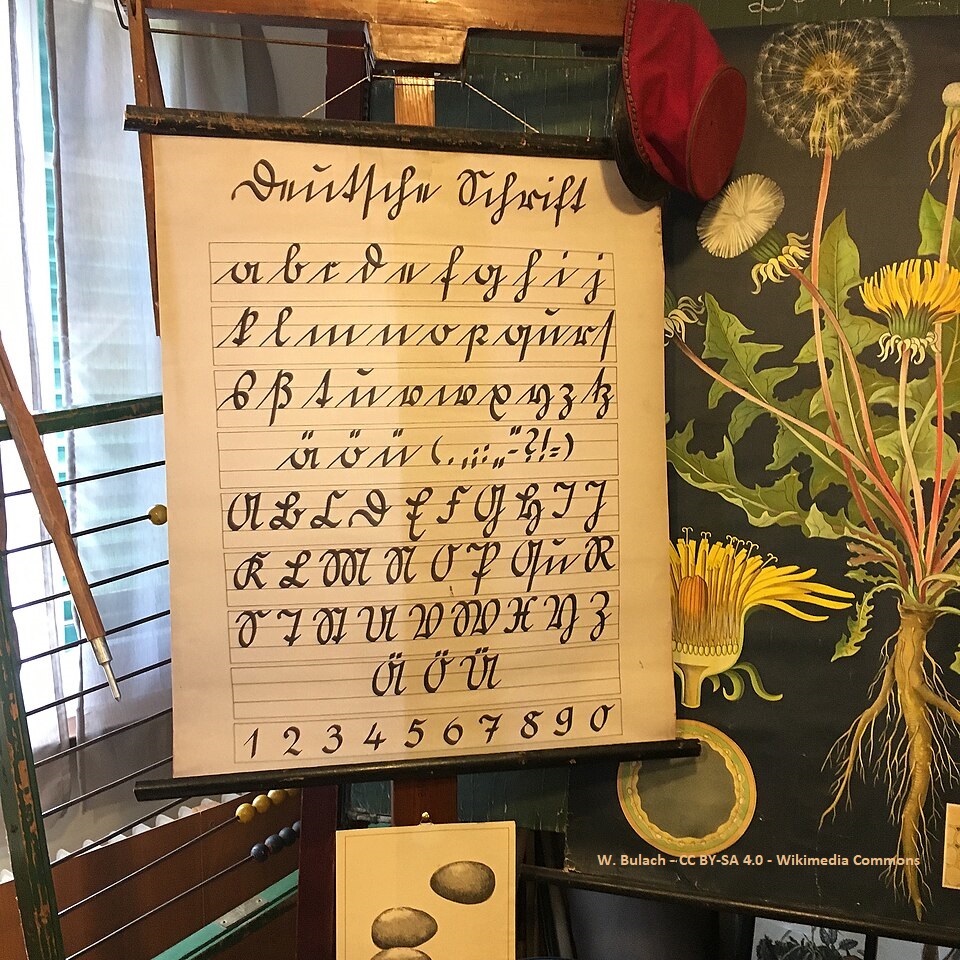 Deutsche Schrift
a b c d e f g h i j
k l m n o p qu r ſ
s ß t u v w x y z tz
ä ö ü ( . , ; : „ “ - ? ! = )
A B C D E F G H I J
K L M N O P Qu R
S T St U V W X Y Z
Ä Ö Ü
1 2 3 4 5 6 7 8 9 0
W. Bulach - CC BY-SA 4.0 - Wikimedia Commons